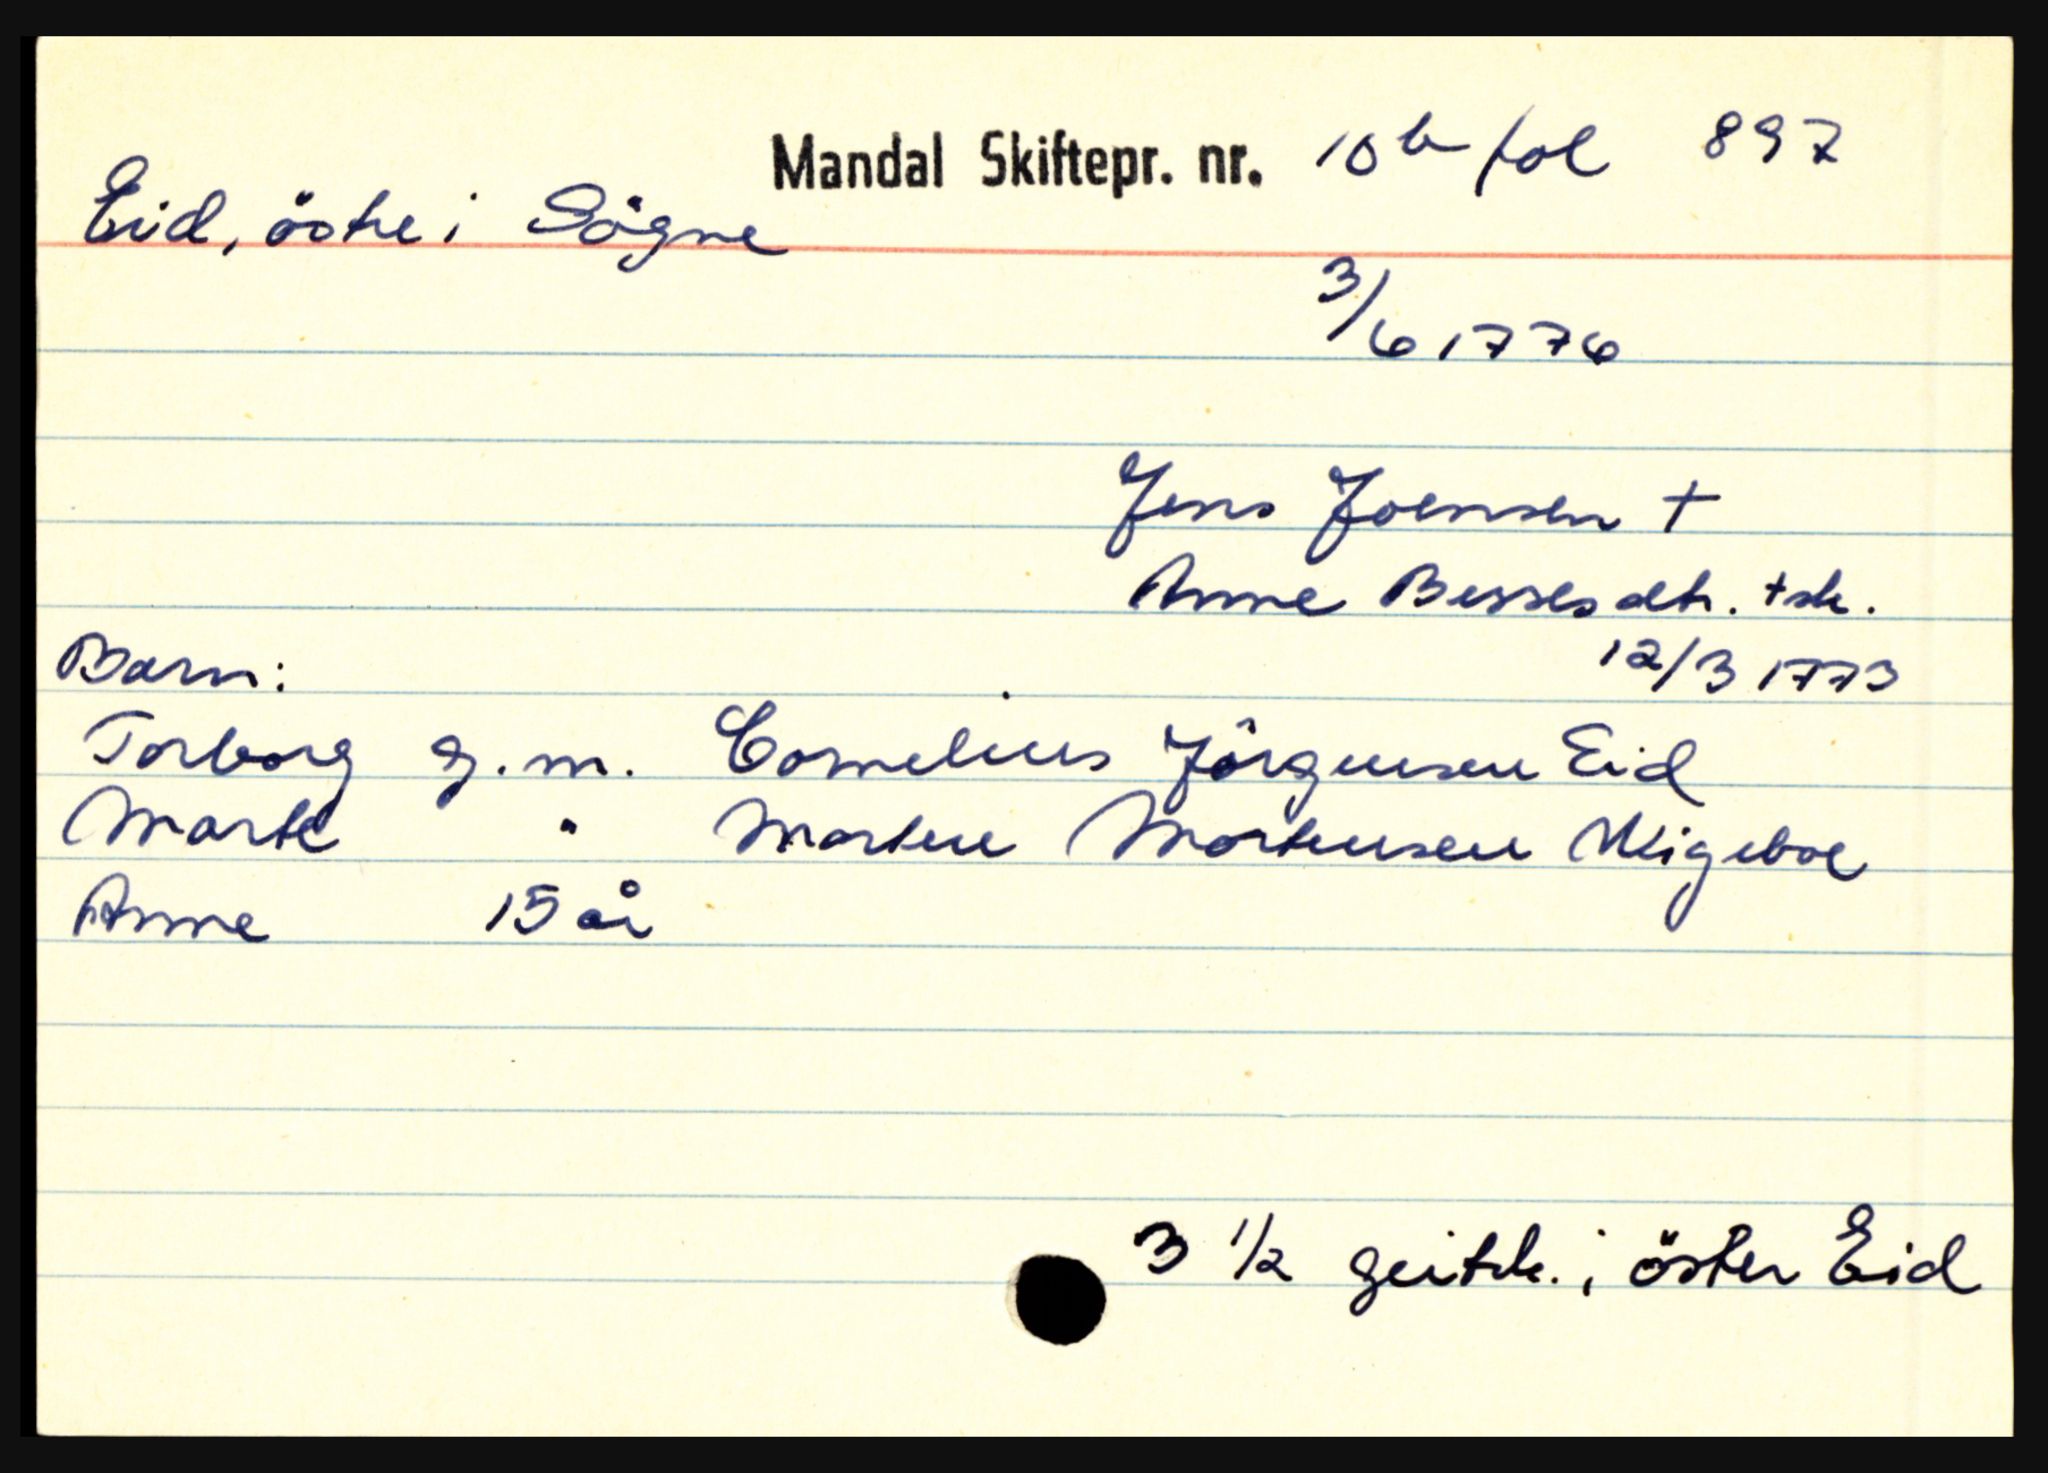 Mandal Skiftepr. nr. 10b fol 897
Eid, östre i Sögne
3/6 1776
Jens Joensen †
Anne Bessesdtr. † sk.
12/3 1773
Barn:
Torborg g.m. Cornelius Jörgensen Eid
Marte " Morten Mortensen Wigeboe
Anne 15 år
3 1/2 geitsk. i öster Eid